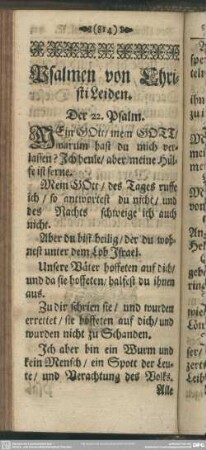 (814)
Psalmen von Chri-
sti Leiden.
Der 22. Psalm.
MEin GOtt/ mein GOTT
warum hast du mich ver-
lassen? Jch heule/ aber/ meine Hül-
fe ist ferne.
Mein GOtt/ des Tages ruffe
ich/ so antwortest du nicht/ und
des Nachts schweige ich auch
nicht.
Aber du bist heilig/ der du woh-
nest unter dem Lob Jsrael.
Unsere Väter hoffeten auf dich/
und da sie hoffeten/ halfest du ihnen
aus.
Zu dir schrien sie/ und wurden
errettet/ sie hoffeten auf dich/ und
wurden nicht zu Schanden.
Jch aber bin ein Wurm und
kein Mensch/ ein Spott der Leu-
te/ und Verachtung des Volks.
Alle